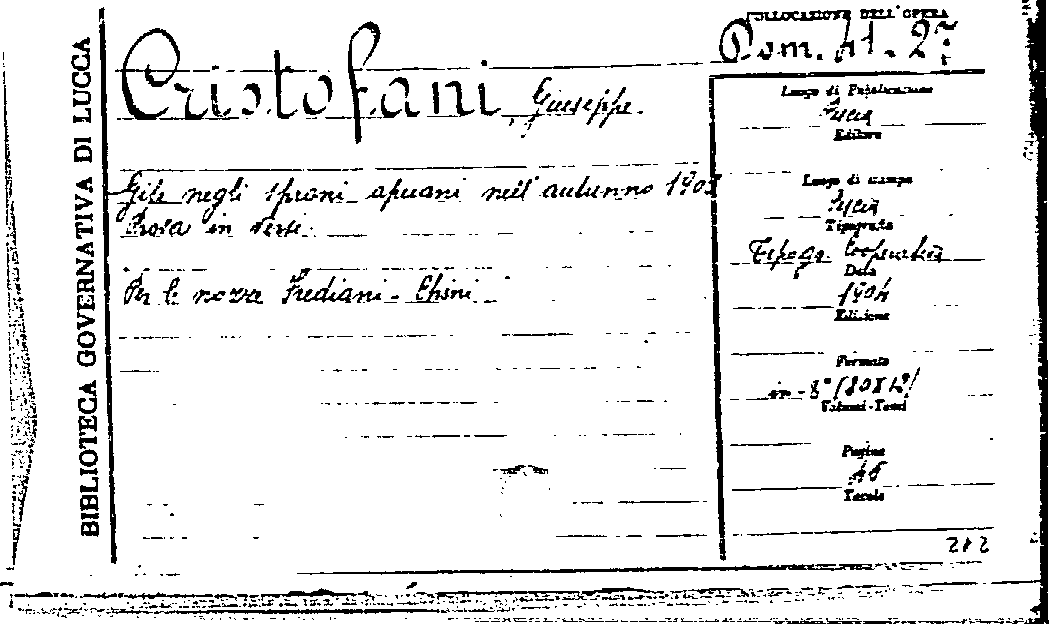 BIBLIOTECA GOVERNATIVA DI LUCCA
COLLOCAZIONE DELL'OPERA
Dom. 41. 27
Cristofani, Giuseppe.
Gite negli sproni apuani nell'autunno 1903
Prosa in versi.
Per le nozze Frediani - Chini
Luogo di Pubblicazione
Pescia
Editore
Luogo di stampa
Pescia
Tipografia
Tipogr. Cooperativa
Data
1904
Edizione
Formato
in-8°
Volumi-Tomi
Pagine
Tavole
212